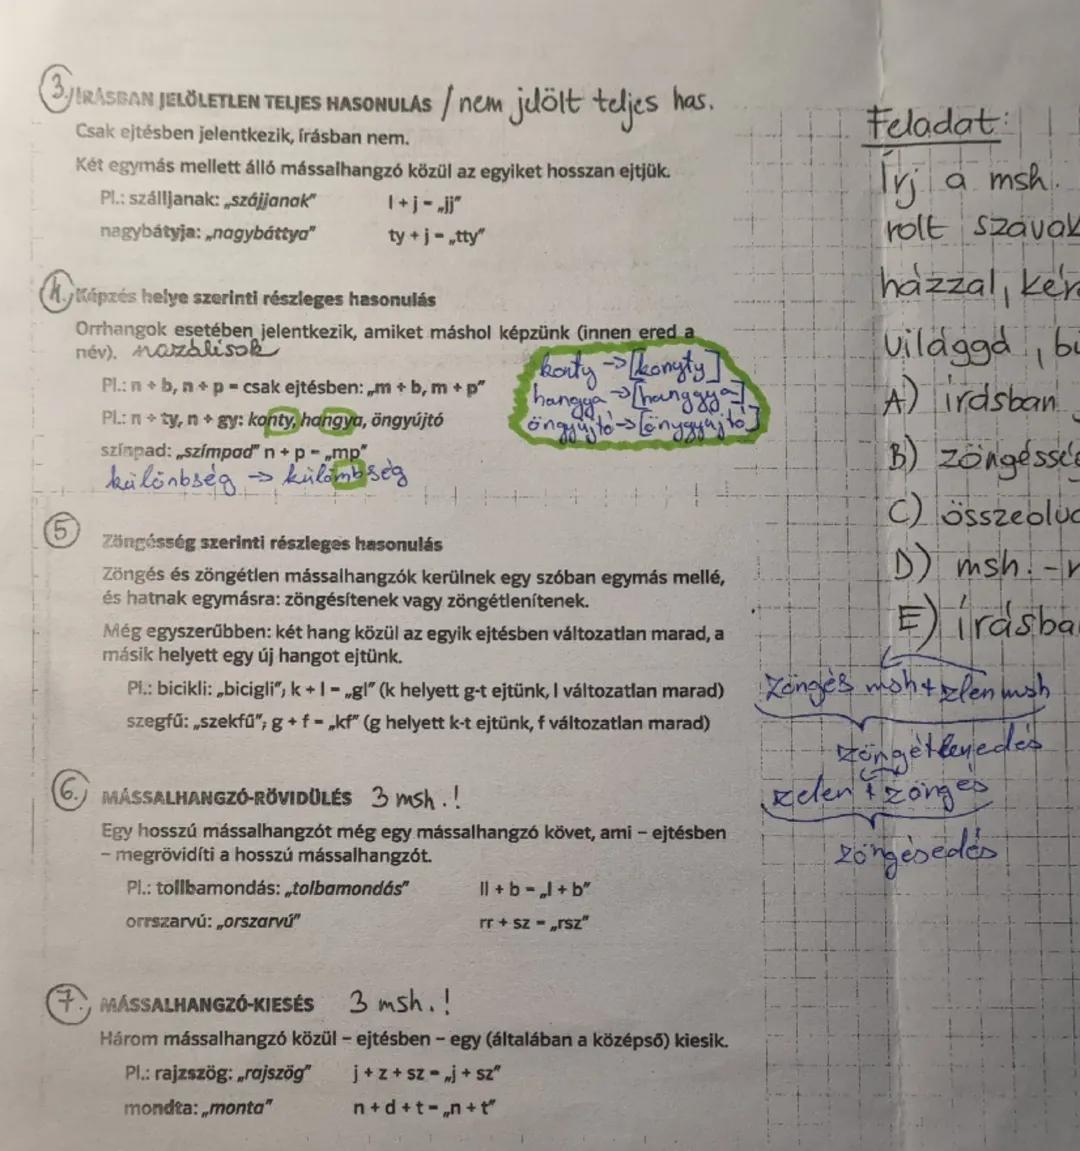 3. ÍRÁSBAN JELÖLETLEN TELJES HASONULÁS / nem jelölt teljes has.
Csak ejtésben jelentkezik, írásban nem.
Két egymás mellett álló mássalhangzó közül az egyiket hosszan ejtjük.
Pl.: szálljanak: „szájjanak” l + j = „jj”
nagybátyja: „nagybáttya” ty + j = „tty”
4. Képzés helye szerinti részleges hasonulás
Orrhangok esetében jelentkezik, amiket máshol képzünk (innen ered a
név). nazálisok
Pl.: n + b, n + p = csak ejtésben: „m + b, m + p”
Pl.: n + ty, n + gy: konty, hangya, öngyújtó
színpad: „színpad” n + p = „mp”
különbség → külömbség
konty → [konyty]
hangya → [hanggya]
öngyújtó → [önygyújtó]
5 Zöngésség szerinti részleges hasonulás
Zöngés és zöngétlen mássalhangzók kerülnek egy szóban egymás mellé,
és hatnak egymásra: zöngésítenek vagy zöngétlenítenek.
Még egyszerűbben: két hang közül az egyik ejtésben változatlan marad, a
másik helyett egy új hangot ejtünk.
Pl.: bicikli: „bicigli”; k + l = „gl” (k helyett g-t ejtünk, l változatlan marad)
szegfű: „szekfű”; g + f = „kf” (g helyett k-t ejtünk, f változatlan marad)
6. MÁSSALHANGZÓ-RÖVIDÜLÉS 3 msh.!
Egy hosszú mássalhangzót még egy mássalhangzó követ, ami – ejtésben
– megrövidíti a hosszú mássalhangzót.
Pl.: tollbamondás: „tolbamondás” ll + b = „l + b”
orrszarvú: „orszarvú” rr + sz = „rsz”
7. MÁSSALHANGZÓ-KIESÉS 3 msh.!
Három mássalhangzó közül – ejtésben – egy (általában a középső) kiesik.
Pl.: rajzszög: „rajszög” j + z + sz = „j + sz”
mondta: „monta” n + d + t = „n + t”
Feladat:
Írj a msh.
rolt szavak
házzal, kér
világgá, bú
A) írásban
B) zöngéssé
C) összeolvad
D) msh.-r
E) írásba
zöngés msh + ztlen msh
zöngétlenedés
ztlen + zöngés
zöngésedés